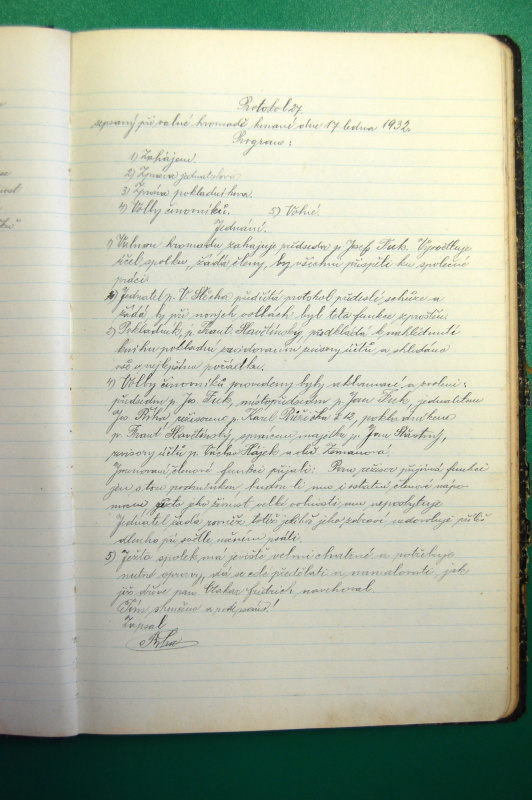 Protokol 27.
sepsaný při valné hromadě konané dne 17 ledna 1932
Program:
1) Zahájení
2) Zpráva jednatelova
3) Zpráva pokladníkova.
4) Volby činovníků. 5) Volné.
Jednání.
1) Valnou hromadu zahajuje předseda p. Josef Fuk. Vysvětluje
účel spolku, žádá členy, by všichni přispěli ku společné
práci.
2) Jednatel p. V. Hlicha předčítá protokol předešlé schůze a
žádá by při nových volbách byl této funkce zproštěn.
3) Pokladník p. Frant. Havlínský, předkládá k nahlédnutí
knihu pokladní revidovanou revisory účtů, a shledáno
vše v nejlepším pořádku.
4) Volby činovníků provedeny byly aklamací, a zvoleni:
předsedou p. Jos. Fuk, místopředsedou p. Jan Fuk, jednatelem
Jos. Bíba, režisérem p. Karel Růžička č 12, pokladníkem
p. Frant. Havlínský, správcem majetku p. Jan Šťastný,
revisory účtů p. Václav Hájek a
Jmenovaní zvolené funkci přijali: Pan režisér přijímá funkci
jen s tou podmínkou, budou-li mu i ostatní členové nápo-
mocni ježto jeho živnost velké volnosti mu neposkytuje
Jednatel žádá rovněž totéž jelikož jeho zdraví nedovoluje příliš
dlouho při světle nočním psáti.
5) Ježto spolek má jeviště velmi chatrné a potřebuje
nutné opravy, dá se celé předělati a namalovati, jak
již dříve pan Otakar Fridrich navrhoval.
Tím skončeno a podepsáno!
Zapsal
Bíba